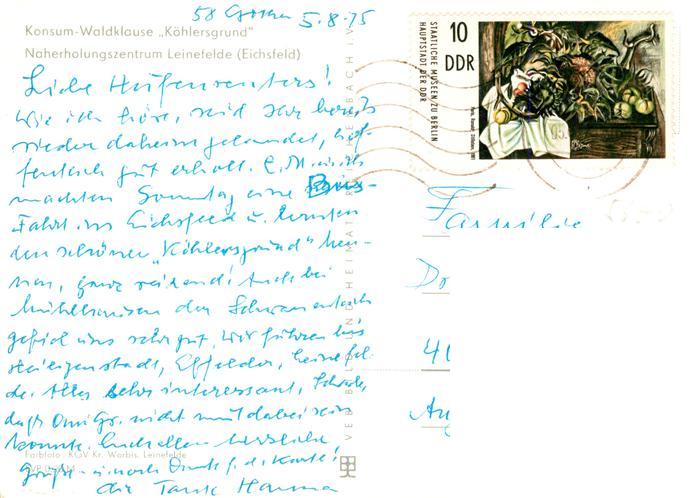 58 Gotha 5.8.75
Konsum-Waldklause „Köhlersgrund"
Naherholungszentrum Leinefelde (Eichsfeld)
Liebe
Wie ich höre, seid Ihr bereits
wieder daheim gelandet, hof-
fentlich gut erholt. E. M. u. ich
machten Sonntag eine Bus-
Fahrt ins Eichsfeld u. lernten
den schönen „Köhlersgrund" ken-
nen, ganz reizend! Auch bei
Mühlhausen der Schwanenteich
gefiel uns sehr gut, wir fuhren bis
Heiligenstadt, Effelder, Leinefel-
de. Alles sehr interessant, schade,
daß Omi Gr. nicht mit dabei sein
konnte. Euch allen herzliche
Grüße u. noch Dank f. d. Karte!
die Tante Hanna
Farbfoto: KGV Kr. Worbis, Leinefelde
VEB BILD UND HEIMAT REICHENBACH I. V.
10
DDR
STAATLICHE MUSEEN ZU BERLIN
HAUPTSTADT DER DDR
Familie
Dr
4
Au